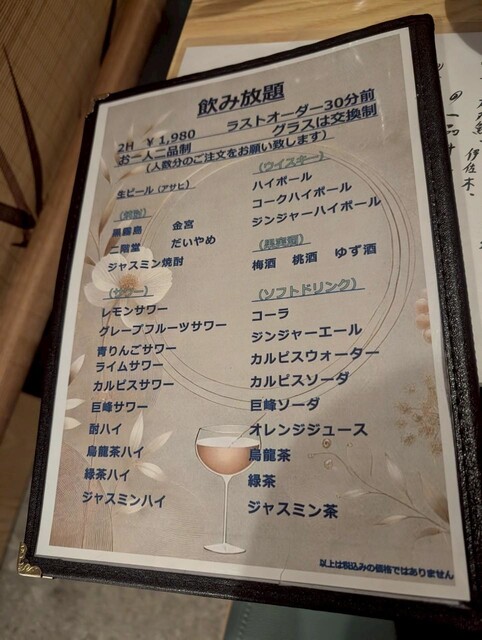 飲み放題
2H ¥1,980 ラストオーダー30分前
お一人二品制 グラスは交換制
(人数分のご注文をお願い致します)
生ビール(アサヒ)
(焼酎)
黒霧島 金宮
二階堂 だいやめ
ジャスミン焼酎
(サワー)
レモンサワー
グレープフルーツサワー
青りんごサワー
ライムサワー
カルピスサワー
巨峰サワー
酎ハイ
烏龍茶ハイ
緑茶ハイ
ジャスミンハイ
(ウイスキー)
ハイボール
コークハイボール
ジンジャーハイボール
(果実酒)
梅酒 桃酒 ゆず酒
(ソフトドリンク)
コーラ
ジンジャーエール
カルピスウォーター
カルピスソーダ
巨峰ソーダ
オレンジジュース
烏龍茶
緑茶
ジャスミン茶
以上は税込みの価格ではありません